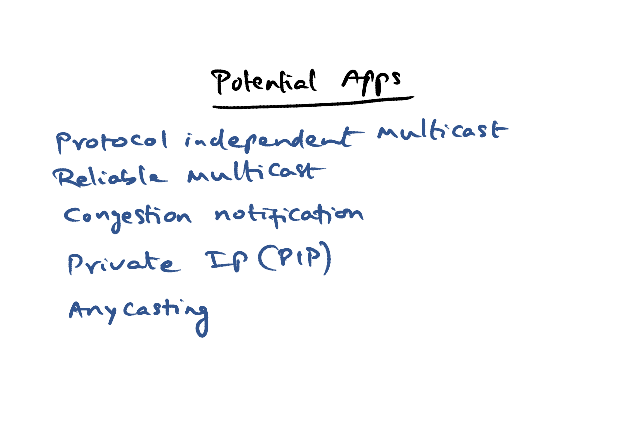 Potential Apps
Protocol independent multicast
Reliable multicast
Congestion notification
Private IP (PIP)
Any casting